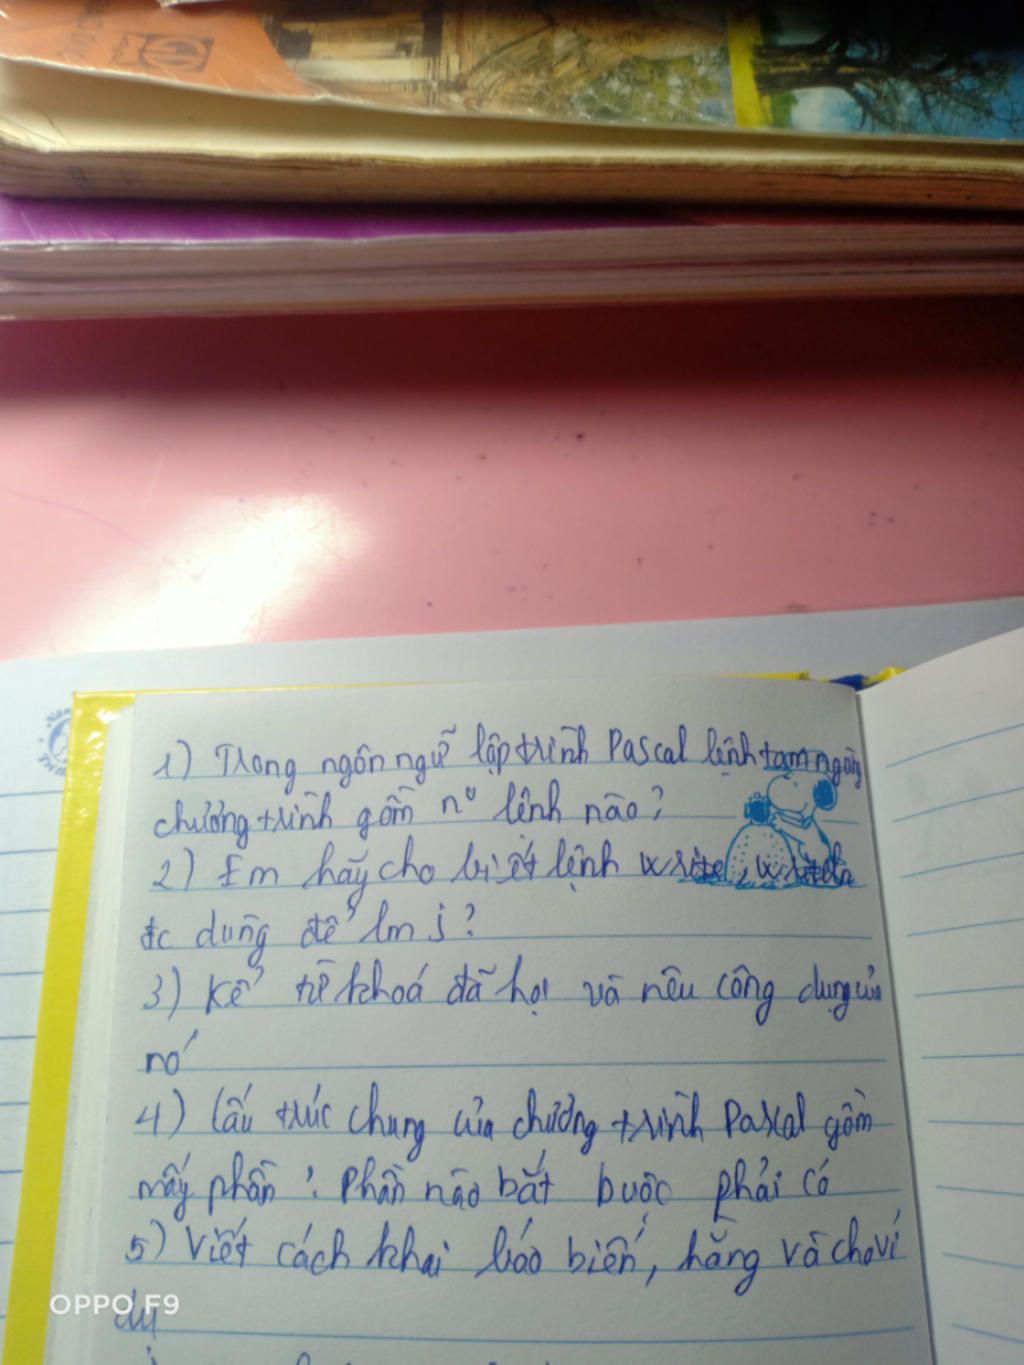 1) Trong ngôn ngữ lập trình Pascal lệnh tạm ngừng
chương trình gồm nº lệnh nào?
2) Em hãy cho biết lệnh write, writeln
đc dùng để lm j?
3) Kể từ khoá đã học và nêu công dụng của
nó
4) Cấu trúc chung của chương trình Pascal gồm
mấy phần? Phần nào bắt buộc phải có
5) Viết cách khai báo biến, hằng và cho ví
dụ
OPPO F9